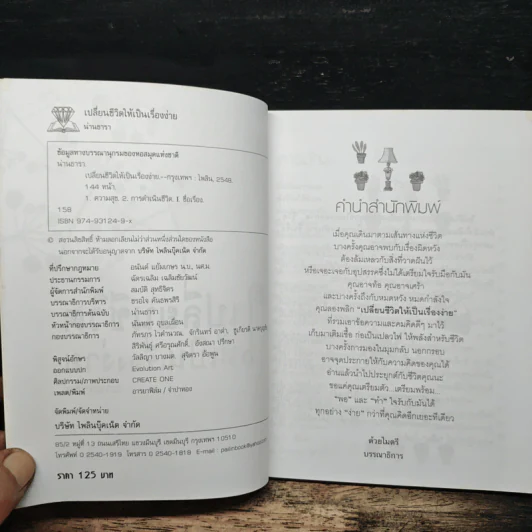 เปลี่ยนชีวิตให้เป็นเรื่องง่าย
น่านธารา
ข้อมูลทางบรรณานุกรมของหอสมุดแห่งชาติ
น่านธารา
เปลี่ยนชีวิตให้เป็นเรื่องง่าย.--กรุงเทพฯ : ไพลิน, 2548.
144 หน้า.
1. ความสุข. 2. การดำเนินชีวิต. I. ชื่อเรื่อง.
158
ISBN 974-93124-9-x
© สงวนลิขสิทธิ์ ห้ามลอกเลียนไม่ว่าส่วนหนึ่งส่วนใดของหนังสือ
นอกจากจะได้รับอนุญาตจาก บริษัท ไพลินบุ๊คเน็ต จำกัด
ที่ปรึกษากฎหมาย อนันต์ แย้มเกษร น.บ., นศ.ม.
ประธานกรรมการ ฉัตรเฉลิม เฉลิมชัยวัฒน์
ผู้จัดการสำนักพิมพ์ สมบัติ สุทธิจิตร
บรรณาธิการบริหาร ชายใจ
บรรณาธิการต้นฉบับ น่านธารา
หัวหน้ากองบรรณาธิการ นันทพร
กองบรรณาธิการ
พิสูจน์อักษร
ออกแบบปก Evolution Art
ศิลปกรรม/ภาพประกอบ CREATE ONE
เพลต/พิมพ์
จัดพิมพ์/จัดจำหน่าย
บริษัท ไพลินบุ๊คเน็ต จำกัด
65/3 หมู่ที่ 13 ถนนเสรีไทย แขวงมีนบุรี เขตมีนบุรี กรุงเทพฯ 10510
โทรศัพท์ 0 2540-1919 โทรสาร 0 2540-1818 E-mail :
ราคา 125 บาท
คำนำสำนักพิมพ์
เมื่อคุณเดินมาตามเส้นทางแห่งชีวิต
บางครั้งคุณอาจพบกับเรื่องผิดหวัง
ต้องล้มเหลวกับสิ่งที่วาดฝันไว้
หรือเจอะเจอกับอุปสรรคซึ่งไม่ได้เตรียมใจรับมือกับมัน
คุณอาจท้อ คุณอาจเศร้า
และบางครั้งถึงกับหมดหวัง หมดกำลังใจ
คุณลองพลิก "เปลี่ยนชีวิตให้เป็นเรื่องง่าย"
ที่รวมเอาข้อความและคมคิดดีๆ มาไว้
เก็บมาเติมเชื้อ ก่อเป็นเปลวไฟ ให้พลังสำหรับชีวิต
บางครั้งการมองในมุมกลับ นอกกรอบ
อาจจุดประกายให้กับความคิดของคุณได้
อ่านแล้วนำไปประยุกต์กับชีวิตคุณนะ
ขอแค่คุณเตรียมตัว...เตรียมพร้อม...
"พอ" และ "ทำ" ใจรับกับมันได้
ทุกอย่าง "ง่าย" กว่าที่คุณคิดอีกเยอะทีเดียว
ด้วยไมตรี
บรรณาธิการ